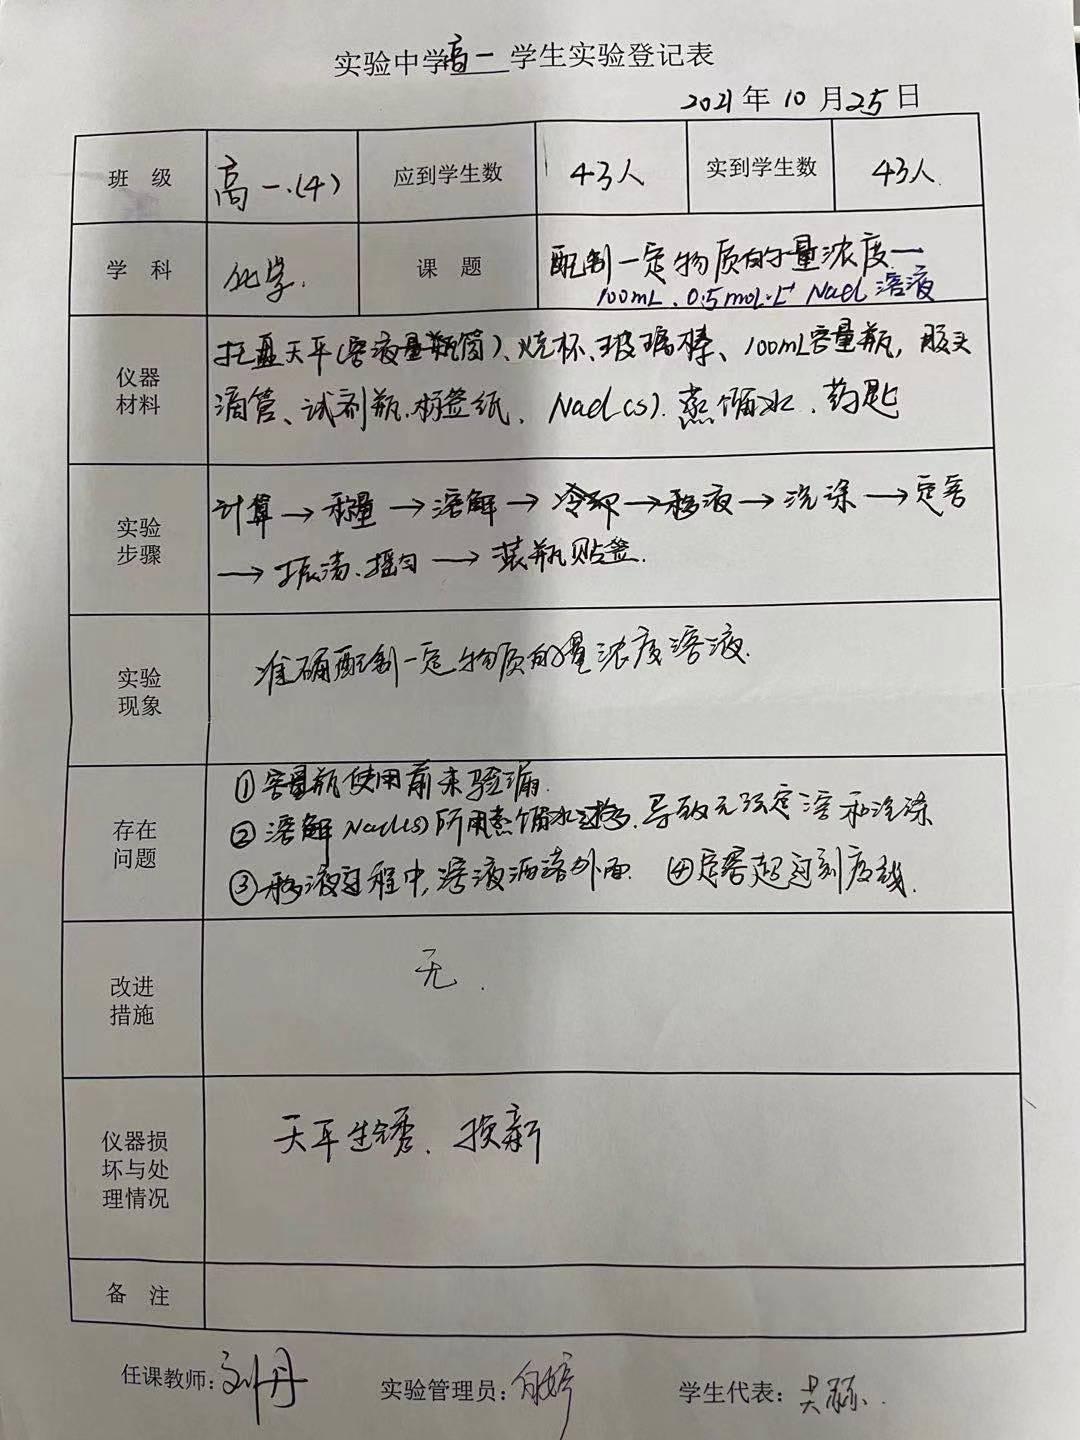 实验中学高一学生实验登记表
2021年10月25日
班 级 高一.(4) 应到学生数 43人 实到学生数 43人.
学 科 化学. 课 题 配制一定物质的量浓度一
100mL.0.5mol·L⁻¹ NaCl溶液
仪器材料
托盘天平(溶液量瓶筒)、烧杯、玻璃棒、100mL容量瓶,胶头
滴管、试剂瓶.标签纸、NaCl(s).蒸馏水.药匙
实验步骤
计算→称量→溶解→冷却→移液→洗涤→定容
→振荡、摇匀→装瓶贴签.
实验现象
准确配制一定物质的量浓度溶液.
存在问题
①容量瓶使用前未验漏.
②溶解NaCl(s)所用蒸馏水过多.导致无法定溶和洗涤
③移液过程中,溶液洒落外面. ④定容超过刻度线.
改进措施
无.
仪器损坏与处理情况
天平生锈.换新
备 注
任课教师:刘丹 实验管理员: 学生代表: